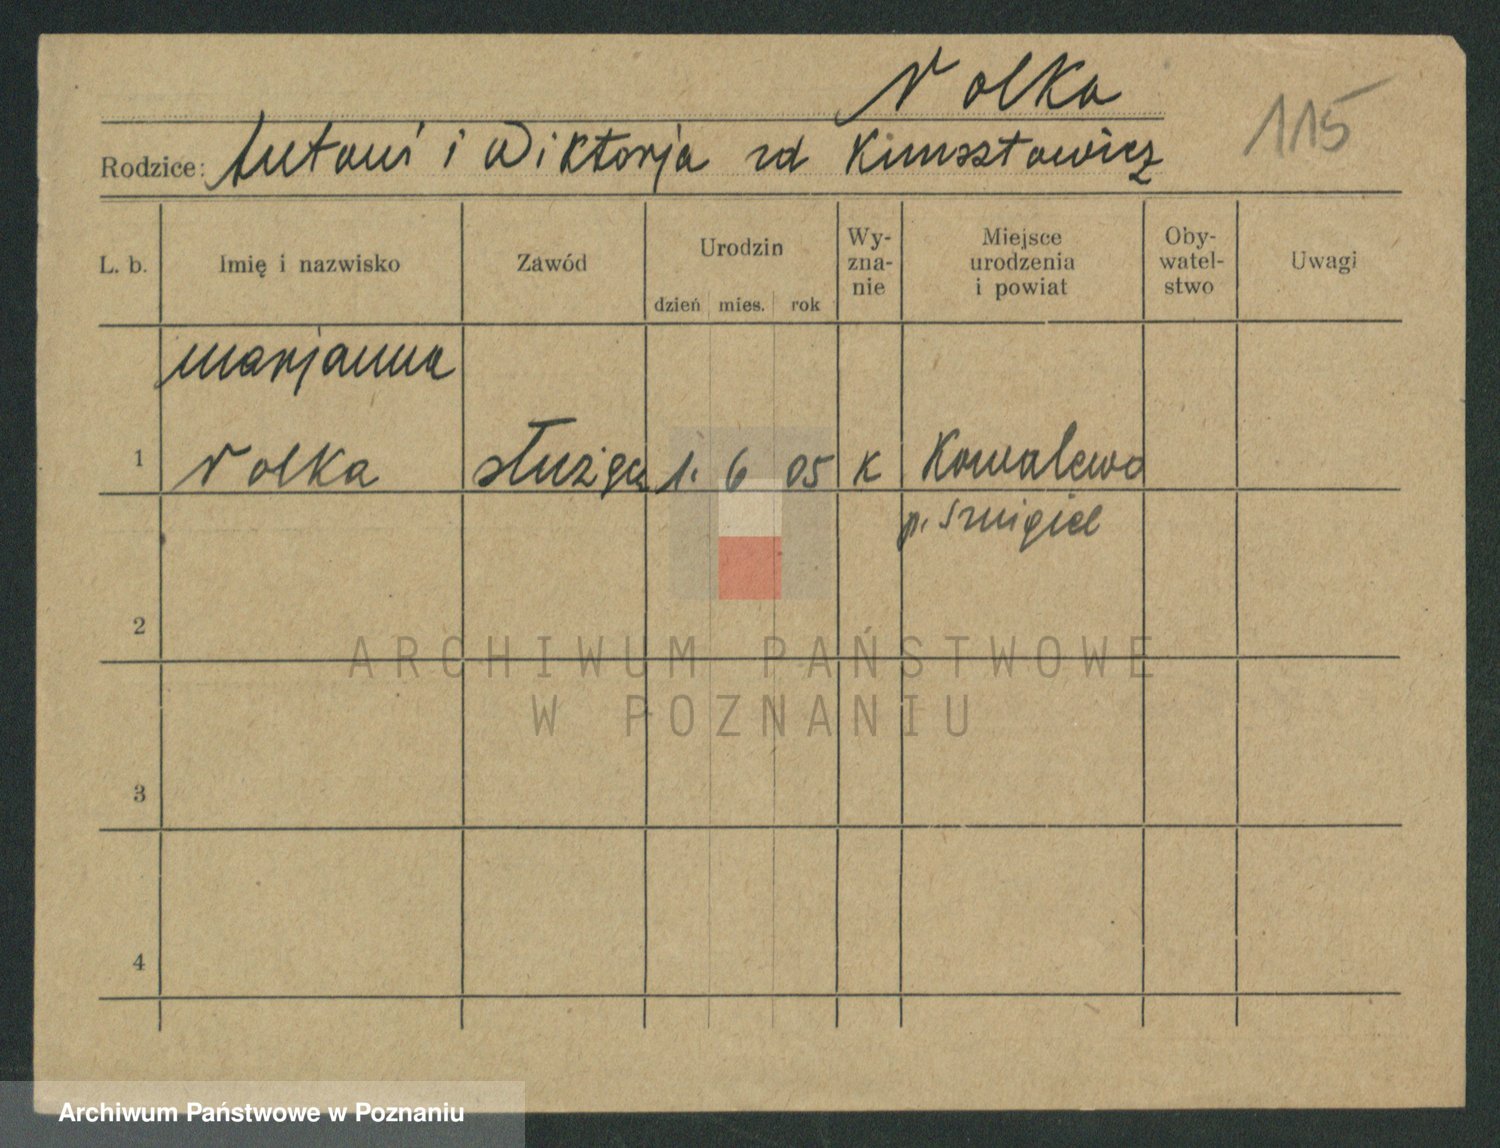 Nolka
115
Rodzice: Antoni i Wiktorja zd
L. b. Imię i nazwisko Zawód Urodzin dzień mies. rok Wy-zna-nie Miejsce urodzenia i powiat Oby-watel-stwo Uwagi
Marjanna
1 Nolka służąca 1. 6 05 K Kowalewo
p. Szmigiel
2
ARCHIWUM PAŃSTWOWE
W POZNANIU
3
4
Archiwum Państwowe w Poznaniu